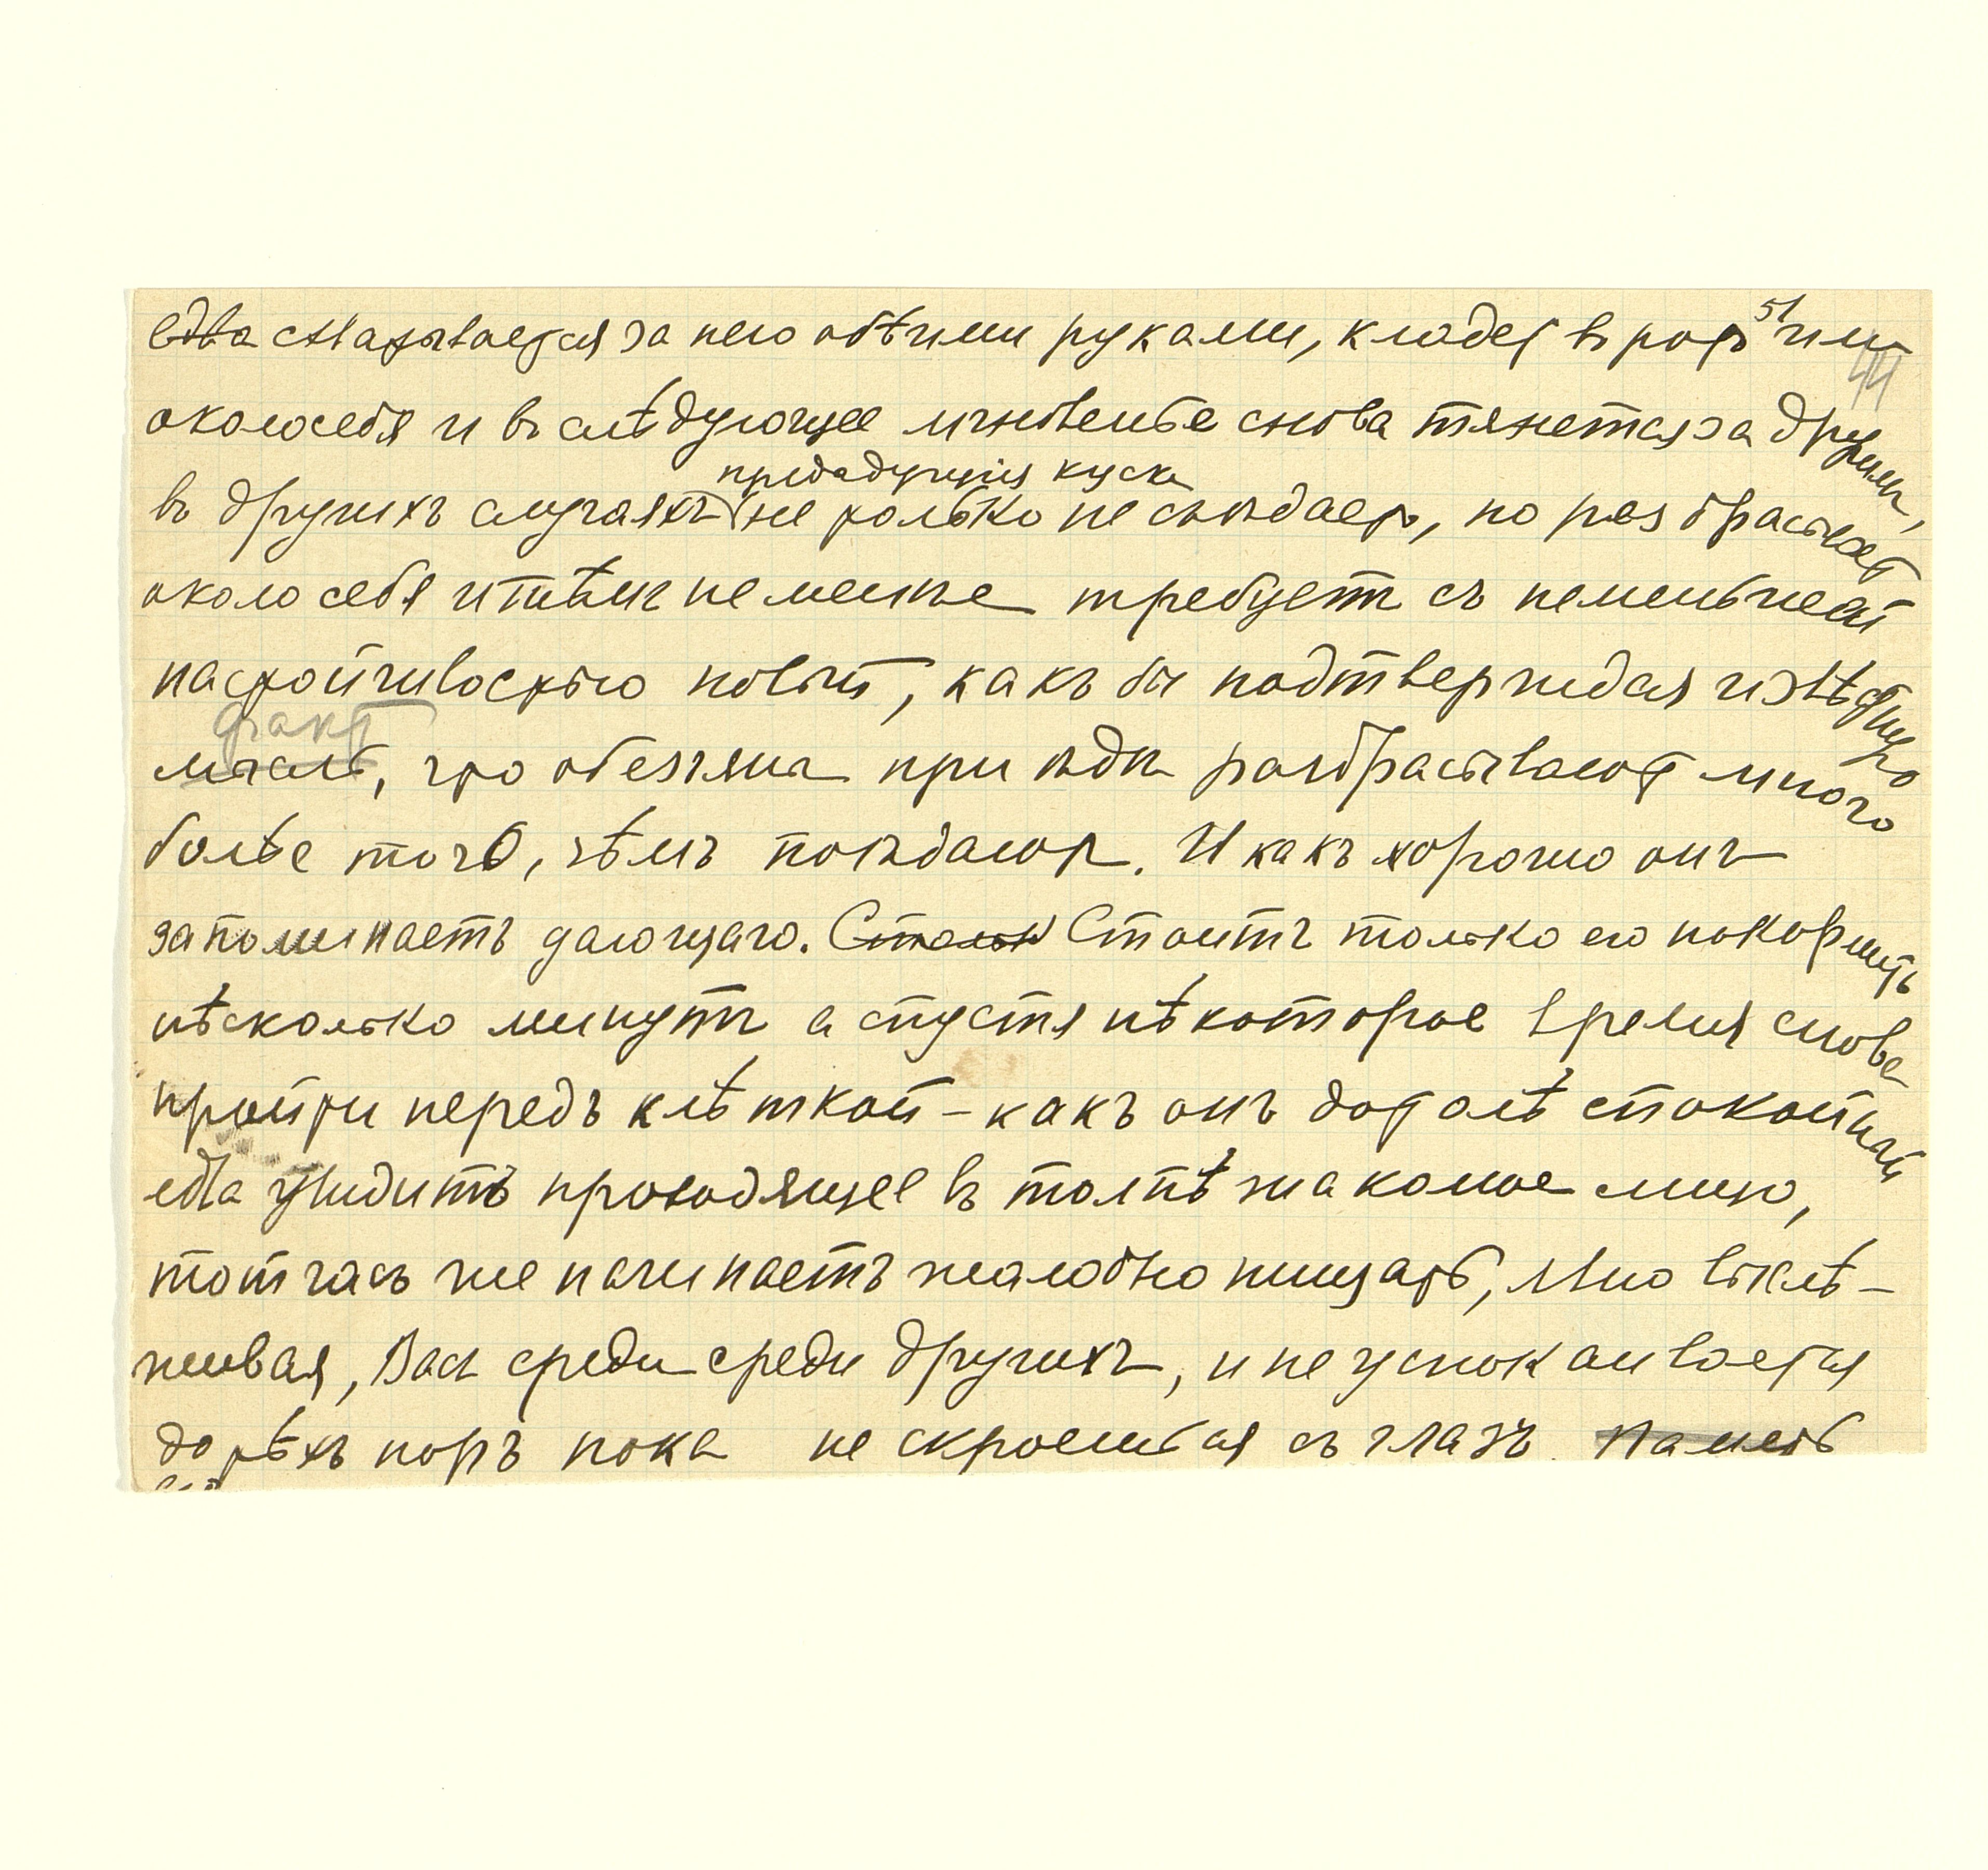 51
44
едва схватывается за него обѣими руками, кладет въ ротъ или
около себя и въ слѣдующее мгновенье снова тянется за другим,
предыдущія куски
въ другихъ случаяхъ не только не съѣдает, но разбрасывает
около себя и тѣмъ не менѣе требуетъ съ неменьшей
настойчивостью новыя, какъ бы подтверждая извѣстную
факт
мысль, что обезьяны при ѣдѣ разбрасывают много
болѣе того, чѣмъ поѣдают. И какъ хорошо онъ
запоминаетъ дающаго. Стольк Стоитъ только его покормить
нѣсколько минутъ а спустя нѣкоторое время снова
пройти передъ клѣткой - какъ онъ дотолѣ спокойный
едва увидитъ проходящее въ толпѣ знакомое лицо,
тотчасъ же начинаетъ жалобно пищать, явно выслѣ-
живая, Васъ среди среди другихъ, и не успокаивается
до тѣхъ поръ пока не скроешься съ глазъ. Память